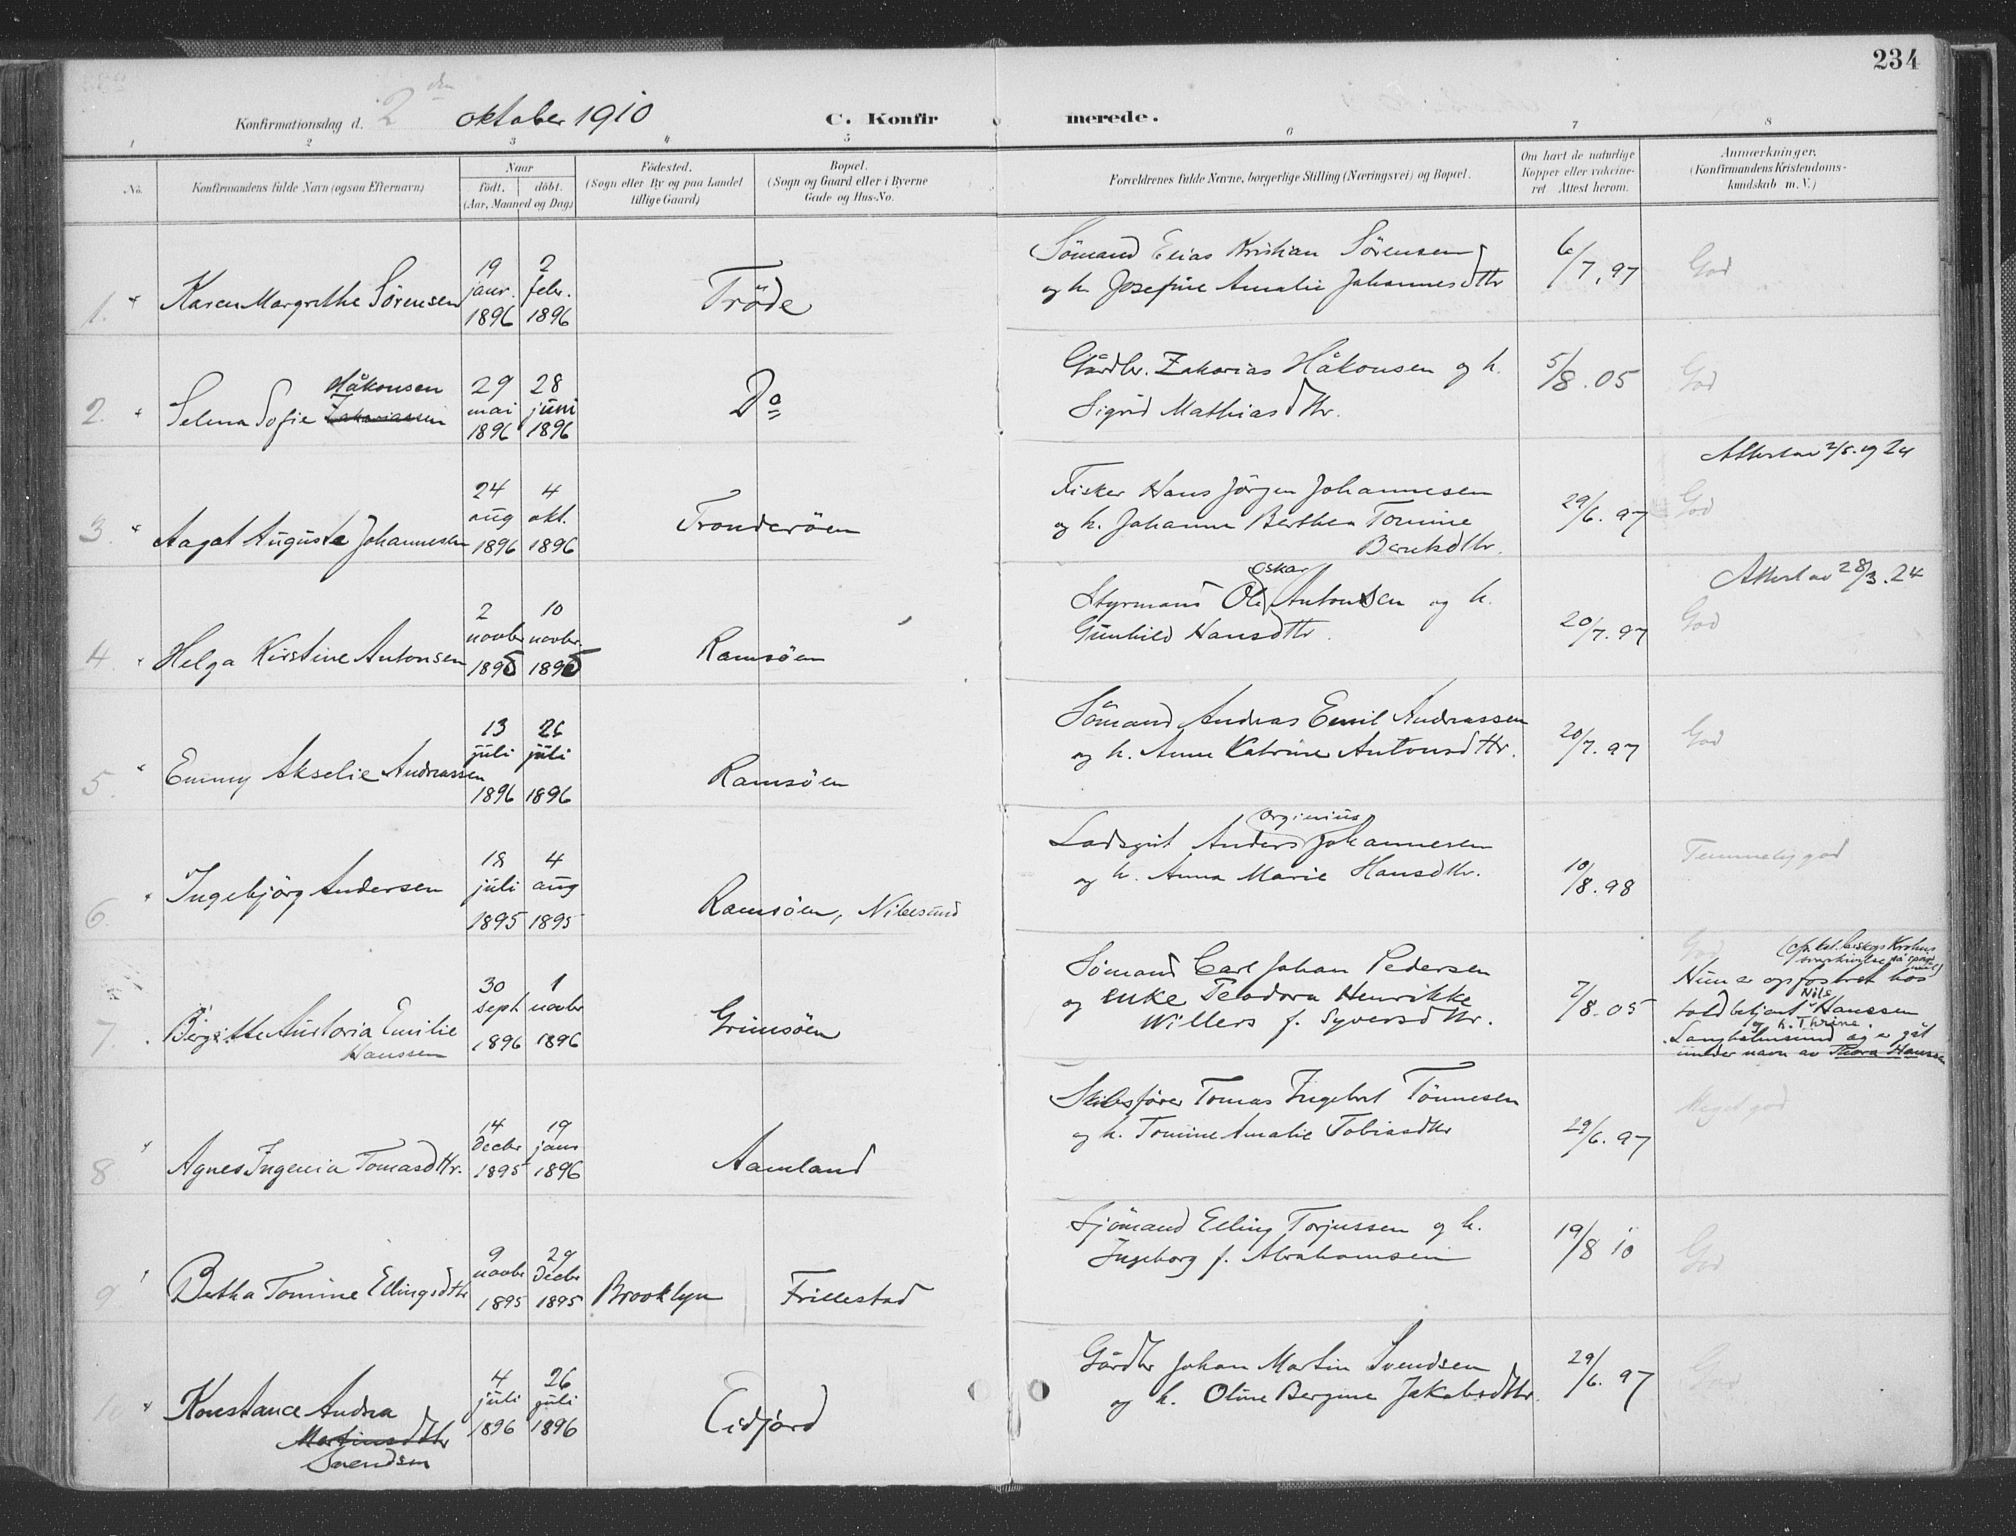 234
Konfirmationsdag d. 2den oktober 1910
C. Konfirmerede.
1 2 3 4 5 6 7 8
No.
Konfirmandens fulde Navn (ogsaa Efternavn)
Naar
födt. döbt.
(Aar, Maaned og Dag)
Födested.
(Sogn eller By og paa Landet
tillige Gaard)
Bopæl.
(Sogn og Gaard eller i Byerne
Gade og Hus-No.
Forældrenes fulde Navne, borgerlige Stilling (Næringsvei) og Bopæl.
Om havt de naturlige
Kopper eller vakcine-
ret Attest herom.
Anmærkninger.
(Konfirmandens Kristendoms-
kundskab m. V.)
1. Karen Margrethe Sörensen
19 janr. 1896
2 febr. 1896
Tröde
Sömand Elias Kristian Sörensen
og h. Josefine Amalie Johannesdttr
6/7.97
God
2. Selma Sofie Zakariassen Håkonsen
29 mai 1896
28 juni 1896
Do
Gårdbr. Zakarias Håkonsen og h.
Sigrid Mathiasdttr.
5/8.05
God
3. Aagot Auguste Johannesen
24 aug 1896
4 okt. 1896
Tronderöen
Fisker Hans Jörgen Johannesen
og h. Johanne Berthea Tomine
Berntsdttr.
29/6.97
Attest av 2/5.1924
God
4. Helga Kirstine Antonsen
2 novbr 1895
10 novbr. 1895
Ramsöen
Styrmand Ole Oskar Antonsen og h.
Gunhild Hansdttr.
20/7.97
Attest av 28/3.24
God
5. Emmy Akselie Andreassen
13 juli 1896
26 juli 1896
Ramsöen
Sömand Andreas Emil Andreassen
og h. Anne Katrine Antonsdttr.
20/7.97
God
6. Ingebjörg Andersen
18 juli 1895
4 aug 1895
Ramsöen, Nibesund
Lodsgut Anders Orginius Johannesen
og h. Anna Marie Hansdttr.
10/8.98
Temmelig god
7. Birgitte Austoria Emilie
Hanssen
30 sept 1896
1 novbr 1896
Grimsöen
Sömand Carl Johan Pedersen
og enke Teodora Henrikke
Willers f. Syversdttr.
2/8.05
God
Hun er opfostret hos
toldbetjent Nils Hanssen
og h. Thrine.
Langholmsund og er gåt
under navn av Thora Hanssen
8 Agnes Ingenia Tomasdttr.
14 decbr 1895
19 janr 1896
Aamland
Skibsförer Tomas Ingebret Tönnesen
og h. Tomine Amalie Tobiasdttr
29/6.97
Meget god
9 Betha Tomine Ellingsdttr
9 novbr 1895
29 decbr 1895
Brooklyn
Frillestad
Sjömand Elling Torjussen og h.
Ingeborg f. Abrahamsen
19/8 10
God
10 Konstance Andrea
Martinsdttr
Svendsen
4 juli 1896
26 juli 1896
Eidjord
Gårdbr Johan Martin Svendsen
og h. Oline Bergine Jakobsdttr.
29/6.97
God